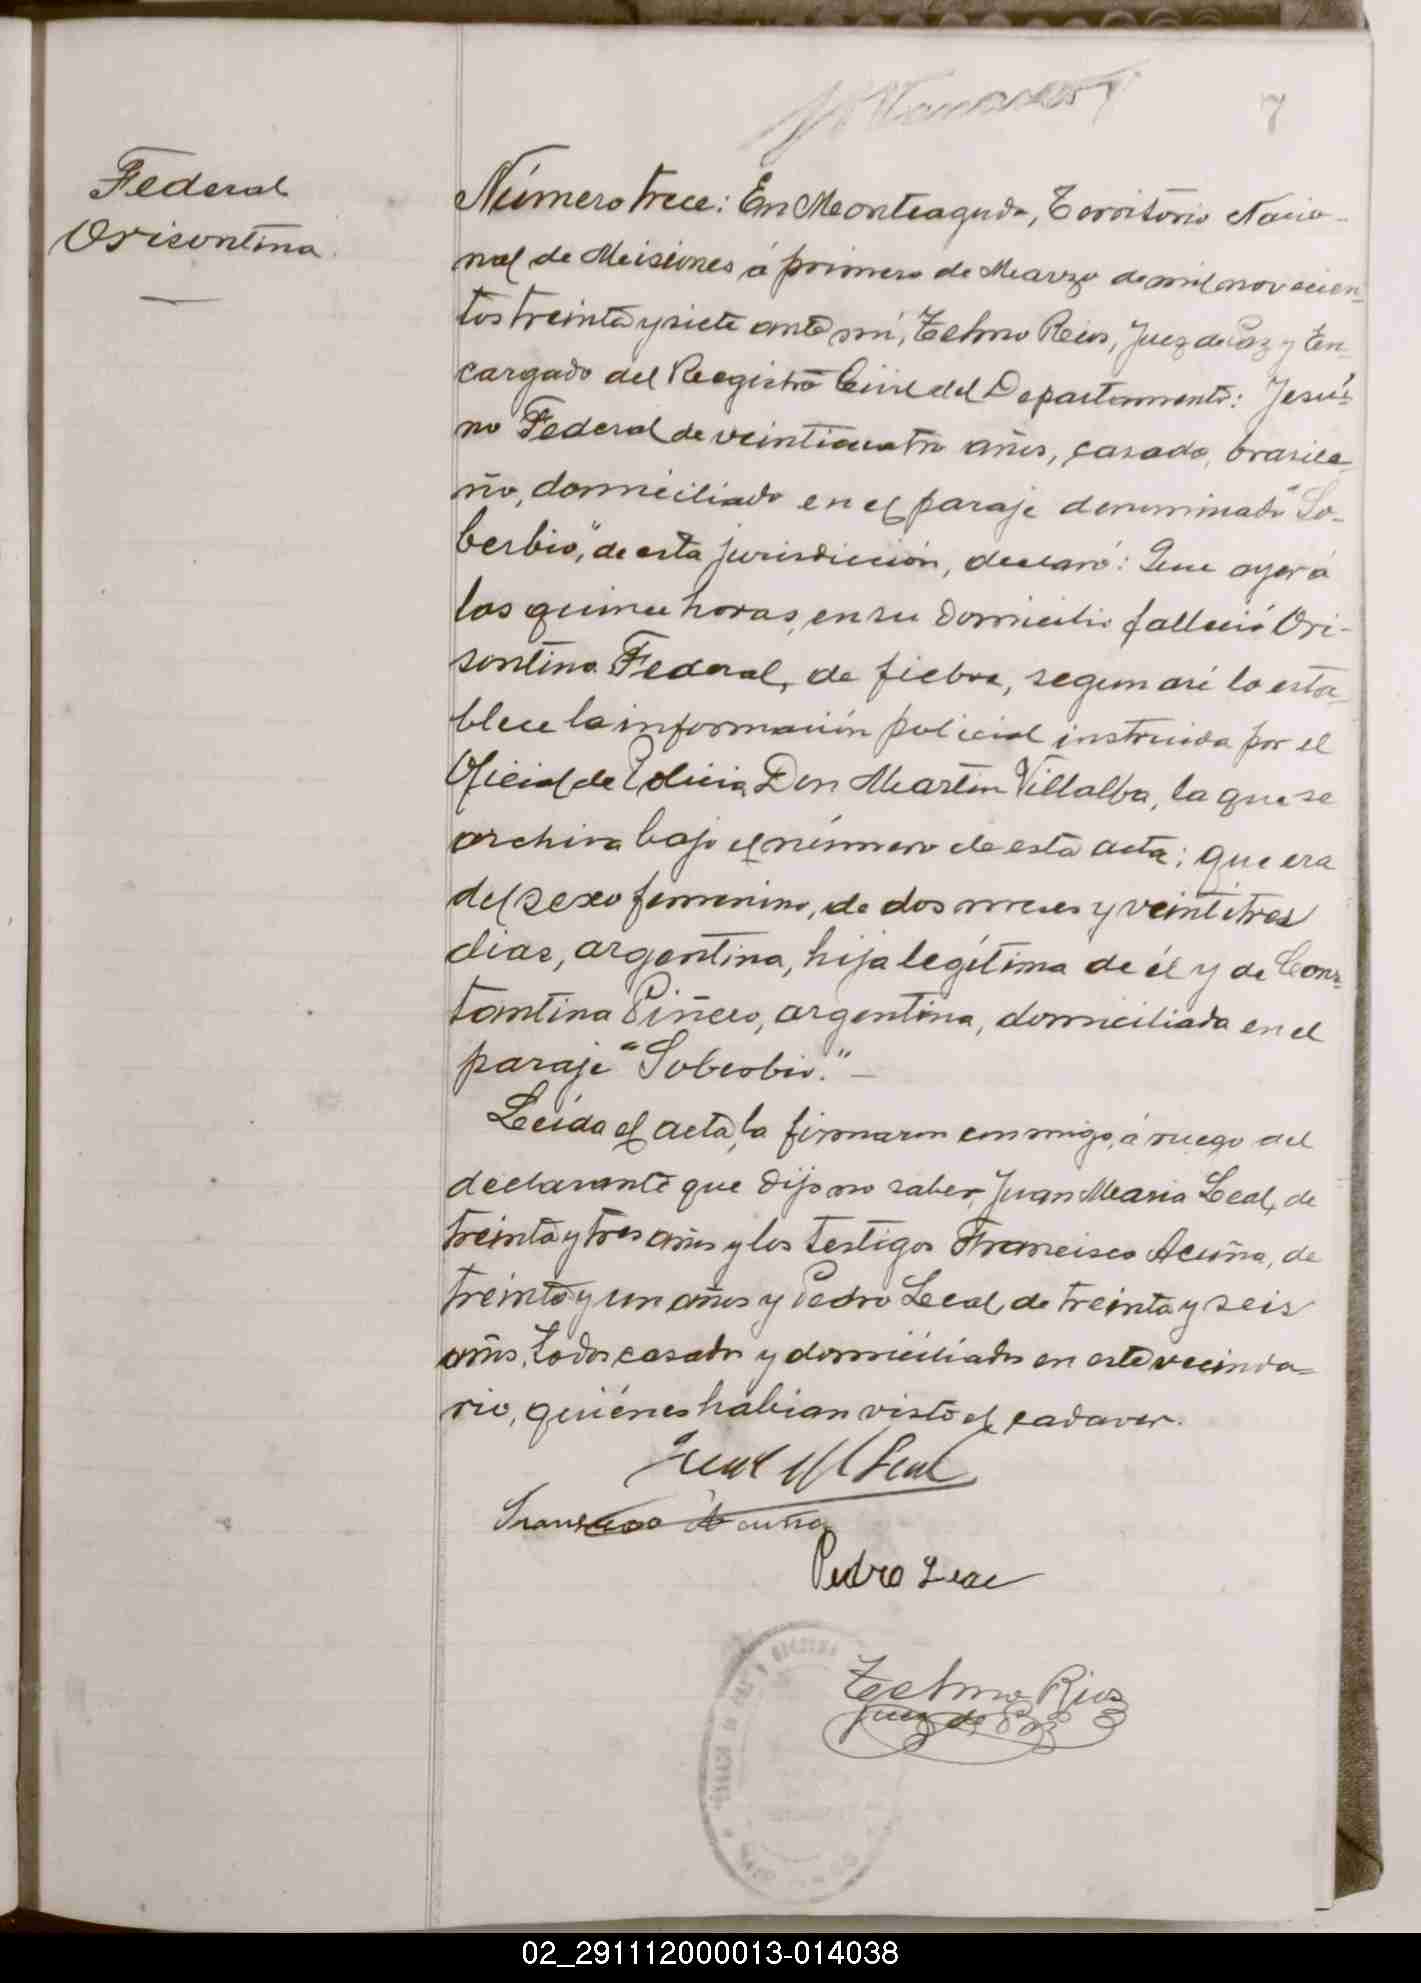 7
Federal
Orisontina
Número trece: En Monteagudo, Territorio Nacio-
nal de Misiones á primero de Marzo de mil novecien-
tos treinta y siete ante mí, Telmo Rios, Juez de Paz y En-
cargado del Registro Civil del Departamento: Jesui-
no Federal de veinticuatro años, casado, brasile-
ño, domiciliado en el paraje denominado "So-
berbio", de esta jurisdicción, declaró: Que ayer á
las quince horas, en su domicilio falleció Ori-
sontina Federal, de fiebre, segun asi lo esta-
blece la información policial instruida por el
Oficial de Policia Don Martin Villalba, la que se
archiva bajo el número de esta acta; que era
del sexo femenino, de dos meses y veintitres
dias, argentina, hija legítima de él y de Cons-
tantina Piñero, argentina, domiciliada en el
paraje "Soberbio". —
Leída el acta, la firmaron conmigo, á ruego del
declarante que dijo no saber, Juan Maria Leal, de
treinta y tres años y los testigos Francisco Acuña, de
treinta y un años y Pedro Leal, de treinta y seis
años, todos casados y domiciliados en este vecinda-
rio, quiénes habian visto el cadaver.
Juan M Leal
Francisco Acuña
Pedro Leal
Telmo Rios
Juez de Paz
02_291112000013-014038